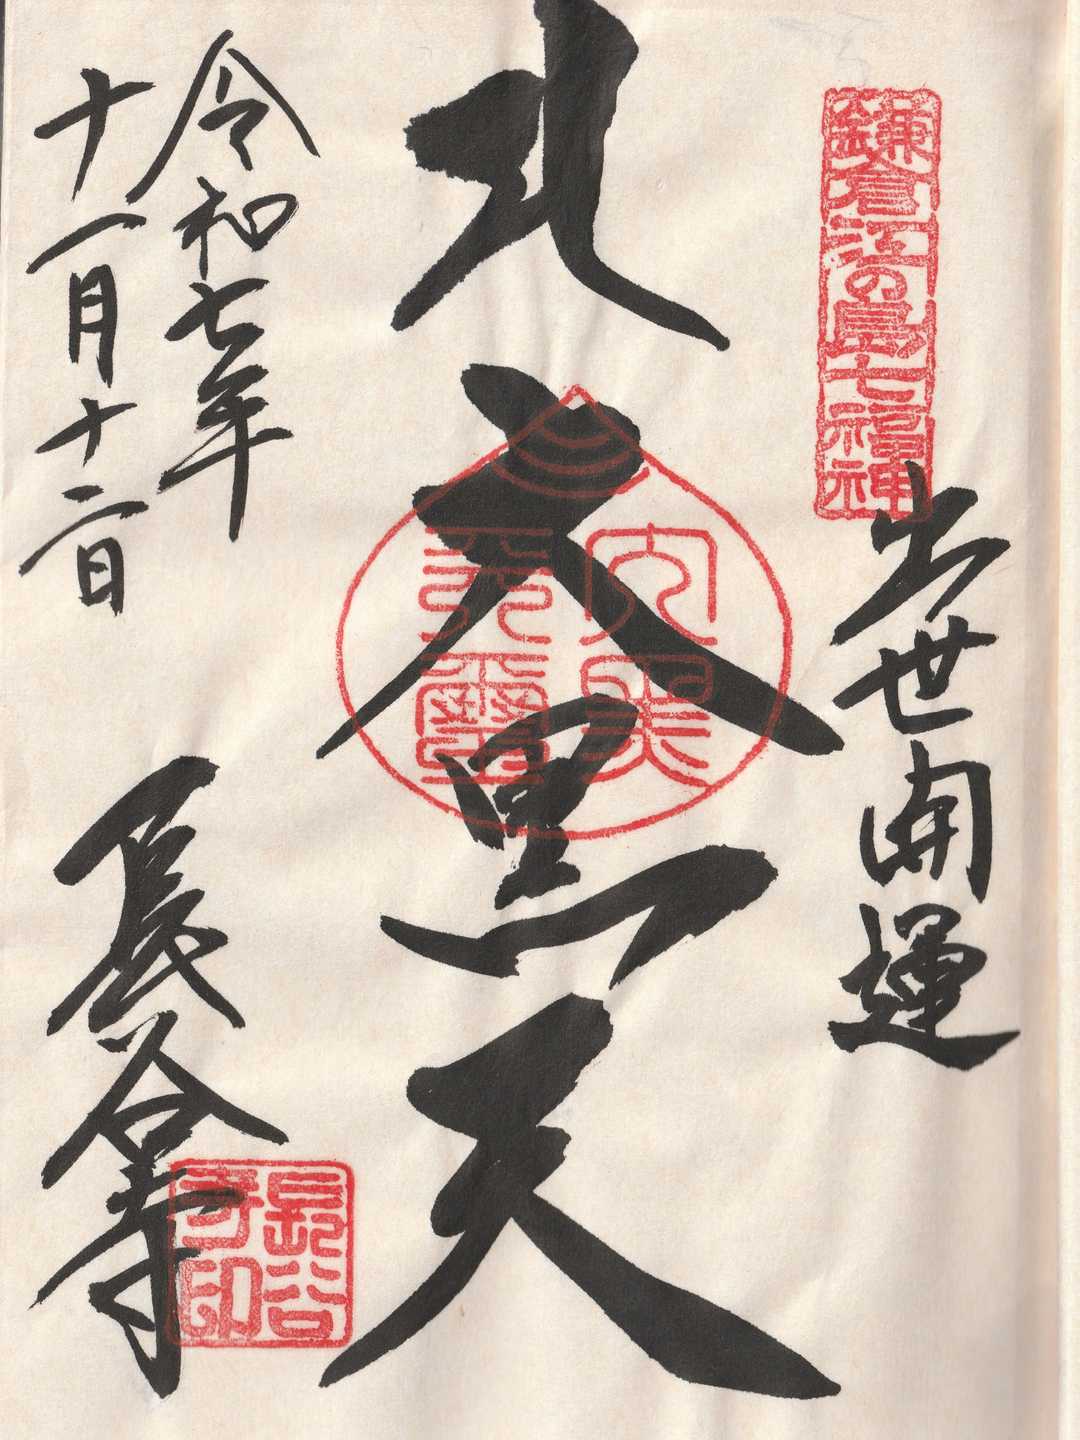 鎌倉江の島七福神
出世開運
大黒天
大黒
天璽
令和七年
十一月十二日
長谷寺
長谷
寺印